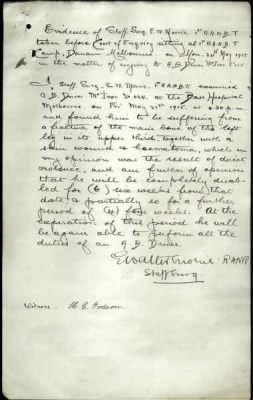 Evidence of Staff Surg. E. W. Morris. 1st R.A.N.B.T
taken before Court of Enquiry sitting at R.A.N.B.T
Camp, Domain Melbourne, on Mon. 24th May 1915
in the matter of injury to A.B. Driver
I Staff Surg. E. W. Morris, 1st R.A.N.B.T examined
A.B. Driver at the Base Hospital
Melbourne on Fri May 21st 1915, at
and found him to be suffering from
a fracture of the main bone of the left
leg in its upper third together with a
skin wound & haematoma, which in
my opinion was the result of direct
violence, and am further of opinion
that he will be completely disab-
led for (6) six weeks from that
date & partially so for a further
period of (4) four weeks. At the
expiration of this period he will
be again able to perform all the
duties of an A.B. Driver.
R.A.N.R
Staff Surg.
Witness.